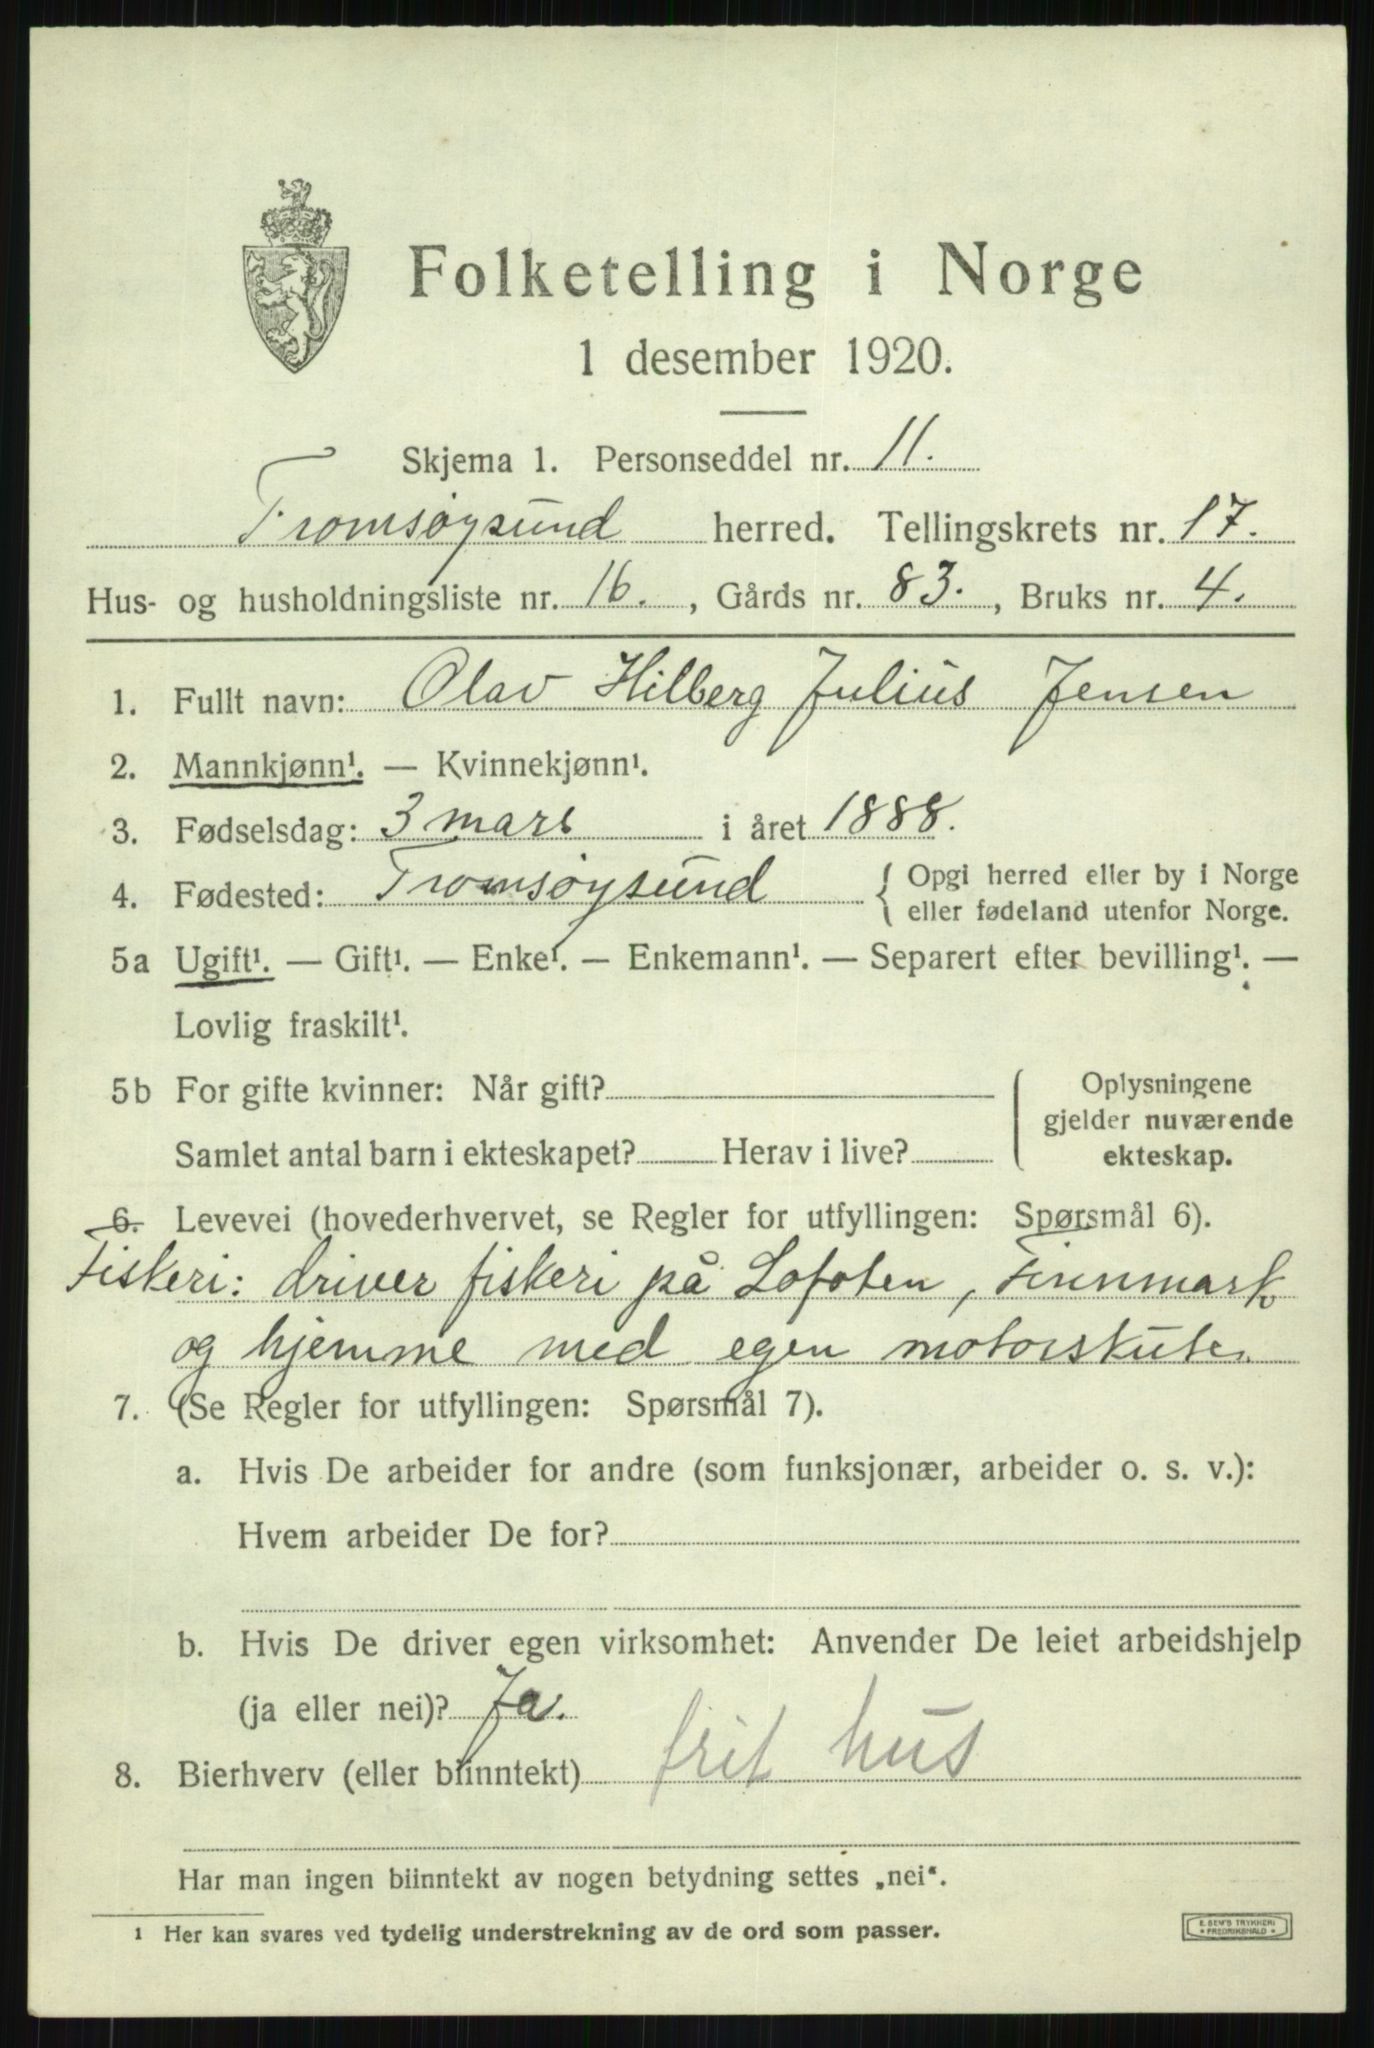 Folketelling i Norge
1 desember 1920.
Skjema 1. Personseddel nr. 11.
Tromsøysund herred. Tellingskrets nr. 17.
Hus- og husholdningsliste nr. 16., Gårds nr. 83., Bruks nr. 4.
1. Fullt navn: Olav Hilberg Julius Jensen
2. Mannkjønn¹. — Kvinnekjønn¹.
3. Fødselsdag: 3 mars i året 1888.
4. Fødested: Tromsøysund { Opgi herred eller by i Norge
eller fødeland utenfor Norge.
5a Ugift¹. — Gift¹. — Enke¹. — Enkemann¹. — Separert efter bevilling¹. —
Lovlig fraskilt¹.
5b For gifte kvinner: Når gift?
Samlet antal barn i ekteskapet? Herav i live?
Oplysningene
gjelder nuværende
ekteskap.
6. Levevei (hovederhvervet, se Regler for utfyllingen: Spørsmål 6).
Fiskeri: driver fiskeri på Lofoten, Finnmark
og hjemme med egen motorskute.
7. (Se Regler for utfyllingen: Spørsmål 7).
a. Hvis De arbeider for andre (som funksjonær, arbeider o. s. v.):
Hvem arbeider De for?
b. Hvis De driver egen virksomhet: Anvender De leiet arbeidshjelp
(ja eller nei)? Ja.
8. Bierhverv (eller biinntekt) frit hus
Har man ingen biinntekt av nogen betydning settes „nei“.
1 Her kan svares ved tydelig understrekning av de ord som passer.
E. SEM'S TRYKKERI
FREDRIKSHALD